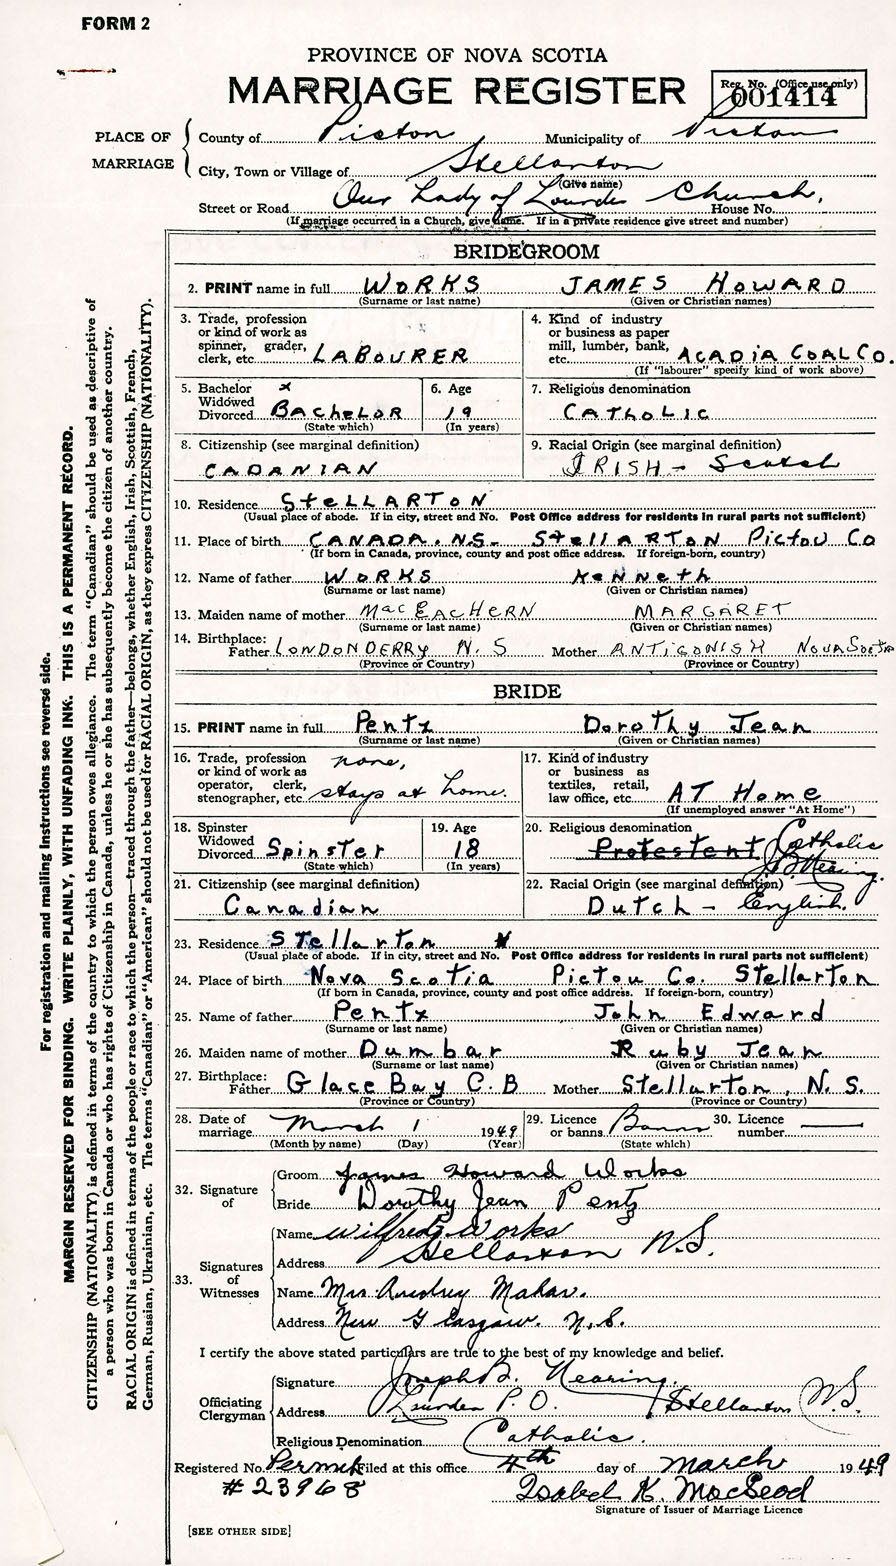 FORM 2
PROVINCE OF NOVA SCOTIA
MARRIAGE REGISTER
Reg. No. (Office use only)
001414
PLACE OF MARRIAGE
County of Pictou Municipality of Pictou
City, Town or Village of Stellarton
(Give name)
Street or Road Our Lady of Lourdes Church, House No.
(If marriage occurred in a Church, give name. If in a private residence give street and number)
BRIDEGROOM
2. PRINT name in full WORKS JAMES HOWARD
(Surname or last name) (Given or Christian names)
3. Trade, profession
or kind of work as
spinner, grader,
clerk, etc. LABOURER
4. Kind of industry
or business as paper
mill, lumber, bank,
etc. ACADIA COAL CO.
(If "labourer" specify kind of work above)
5. Bachelor x
Widowed
Divorced BACHELOR
(State which)
6. Age
19
(In years)
7. Religious denomination
CATHOLIC
8. Citizenship (see marginal definition)
CADANIAN
9. Racial Origin (see marginal definition)
IRISH - Scotch
10. Residence STELLARTON
(Usual place of abode. If in city, street and No. Post Office address for residents in rural parts not sufficient)
11. Place of birth CANADA. N.S- STELLARTON PICTOU CO
(If born in Canada, province, county and post office address. If foreign-born, country)
12. Name of father WORKS KENNETH
(Surname or last name) (Given or Christian names)
13. Maiden name of mother MacEACHERN MARGARET
(Surname or last name) (Given or Christian names)
14. Birthplace:
Father LONDONDERRY N.S Mother ANTIGONISH NOVA Scotia
(Province or Country) (Province or Country)
BRIDE
15. PRINT name in full Pentz Dorothy Jean
(Surname or last name) (Given or Christian names)
16. Trade, profession
or kind of work as
operator, clerk,
stenographer, etc. none,
stays at home.
17. Kind of industry
or business as
textiles, retail,
law office, etc. AT Home
(If unemployed answer "At Home")
18. Spinster
Widowed
Divorced Spinster
(State which)
19. Age
18
(In years)
20. Religious denomination
Protestent Catholic
J.B. Nearing.
21. Citizenship (see marginal definition)
Canadian
22. Racial Origin (see marginal definition)
Dutch - English.
23. Residence Stellarton
(Usual place of abode. If in city, street and No. Post Office address for residents in rural parts not sufficient)
24. Place of birth Nova Scotia Pictou Co. Stellarton
(If born in Canada, province, county and post office address. If foreign-born, country)
25. Name of father Pentz John Edward
(Surname or last name) (Given or Christian names)
26. Maiden name of mother Dumbar Ruby Jean
(Surname or last name) (Given or Christian names)
27. Birthplace:
Father Glace Bay C.B Mother Stellarton, N.S.
(Province or Country) (Province or Country)
28. Date of
marriage March 1 1949
(Month by name) (Day) (Year)
29. Licence
or banns Banns
(State which)
30. Licence
number
32. Signature of
Groom James Howard Works
Bride Dorothy Jean Pentz
33. Signatures of Witnesses
Name Wilfred Works
Address Stellarton N.S.
Name Mrs Audrey Mahar.
Address New Glasgow. N.S.
I certify the above stated particulars are true to the best of my knowledge and belief.
Officiating Clergyman
Signature Joseph B. Nearing.
Address Lourdes P.O. Stellarton N.S.
Religious Denomination Catholic.
Registered No. Permit Filed at this office 4th day of March 1949
#23968
Isabel K. MacLeod
Signature of Issuer of Marriage Licence
[SEE OTHER SIDE]
For registration and mailing instructions see reverse side.
MARGIN RESERVED FOR BINDING. WRITE PLAINLY, WITH UNFADING INK. THIS IS A PERMANENT RECORD.
CITIZENSHIP (NATIONALITY) is defined in terms of the country to which the person owes allegiance. The term "Canadian" should be used as descriptive of
a person who was born in Canada or who has rights of Citizenship in Canada, unless he or she has subsequently become the citizen of another country.
RACIAL ORIGIN is defined in terms of the people or race to which the person—traced through the father—belongs, whether English, Irish, Scottish, French,
German, Russian, Ukrainian, etc. The terms "Canadian" or "American" should not be used for RACIAL ORIGIN, as they express CITIZENSHIP (NATIONALITY).